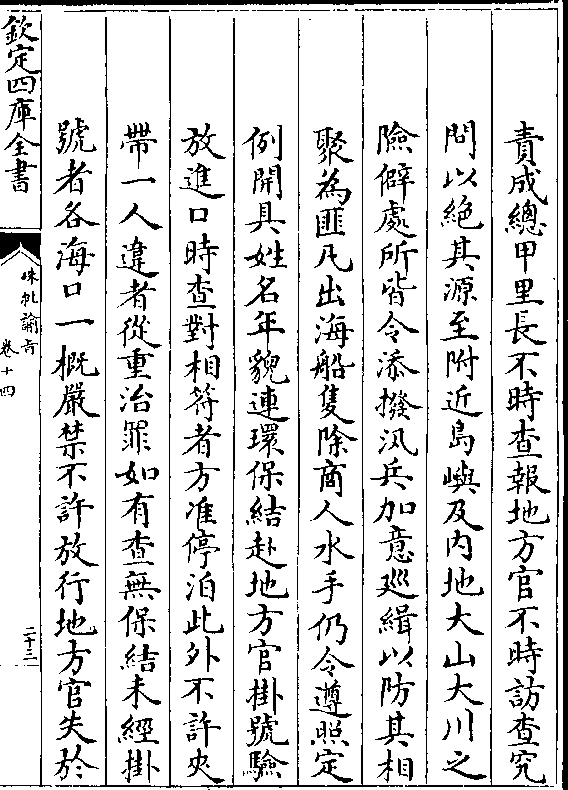 責成總甲里長不時查報地方官不時訪查究
問以絶其源至附近島嶼及内地大山大川之
險僻處所皆令添撥汛兵加意廵緝以防其相
聚為匪凡出海船隻除商人水手仍令遵照定
例開具姓名年貌連環保結赴地方官掛號驗
放進口時查對相符者方准停泊此外不許夾
帶一人違者從重治罪如有查無保結未經掛
號者各海口一概嚴禁不許放行地方官失於
欽定四庫全書
硃批諭旨
卷十四
二十三